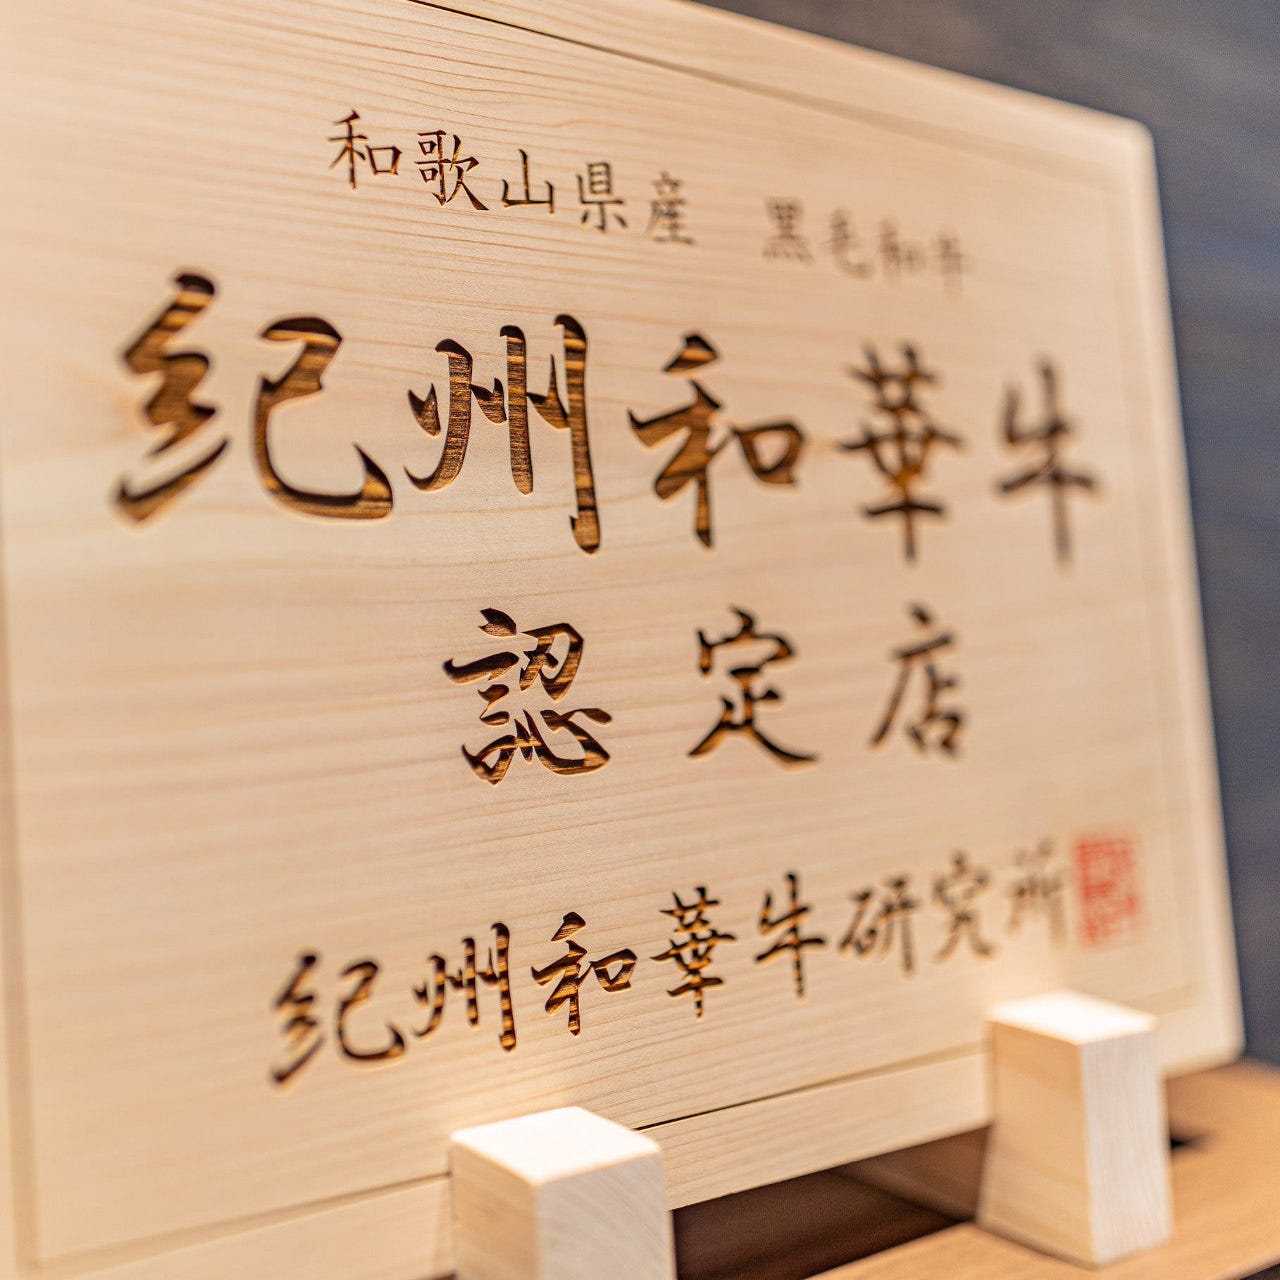 和歌山県産 黒毛和牛
紀州和華牛
認定店
紀州和華牛研究所